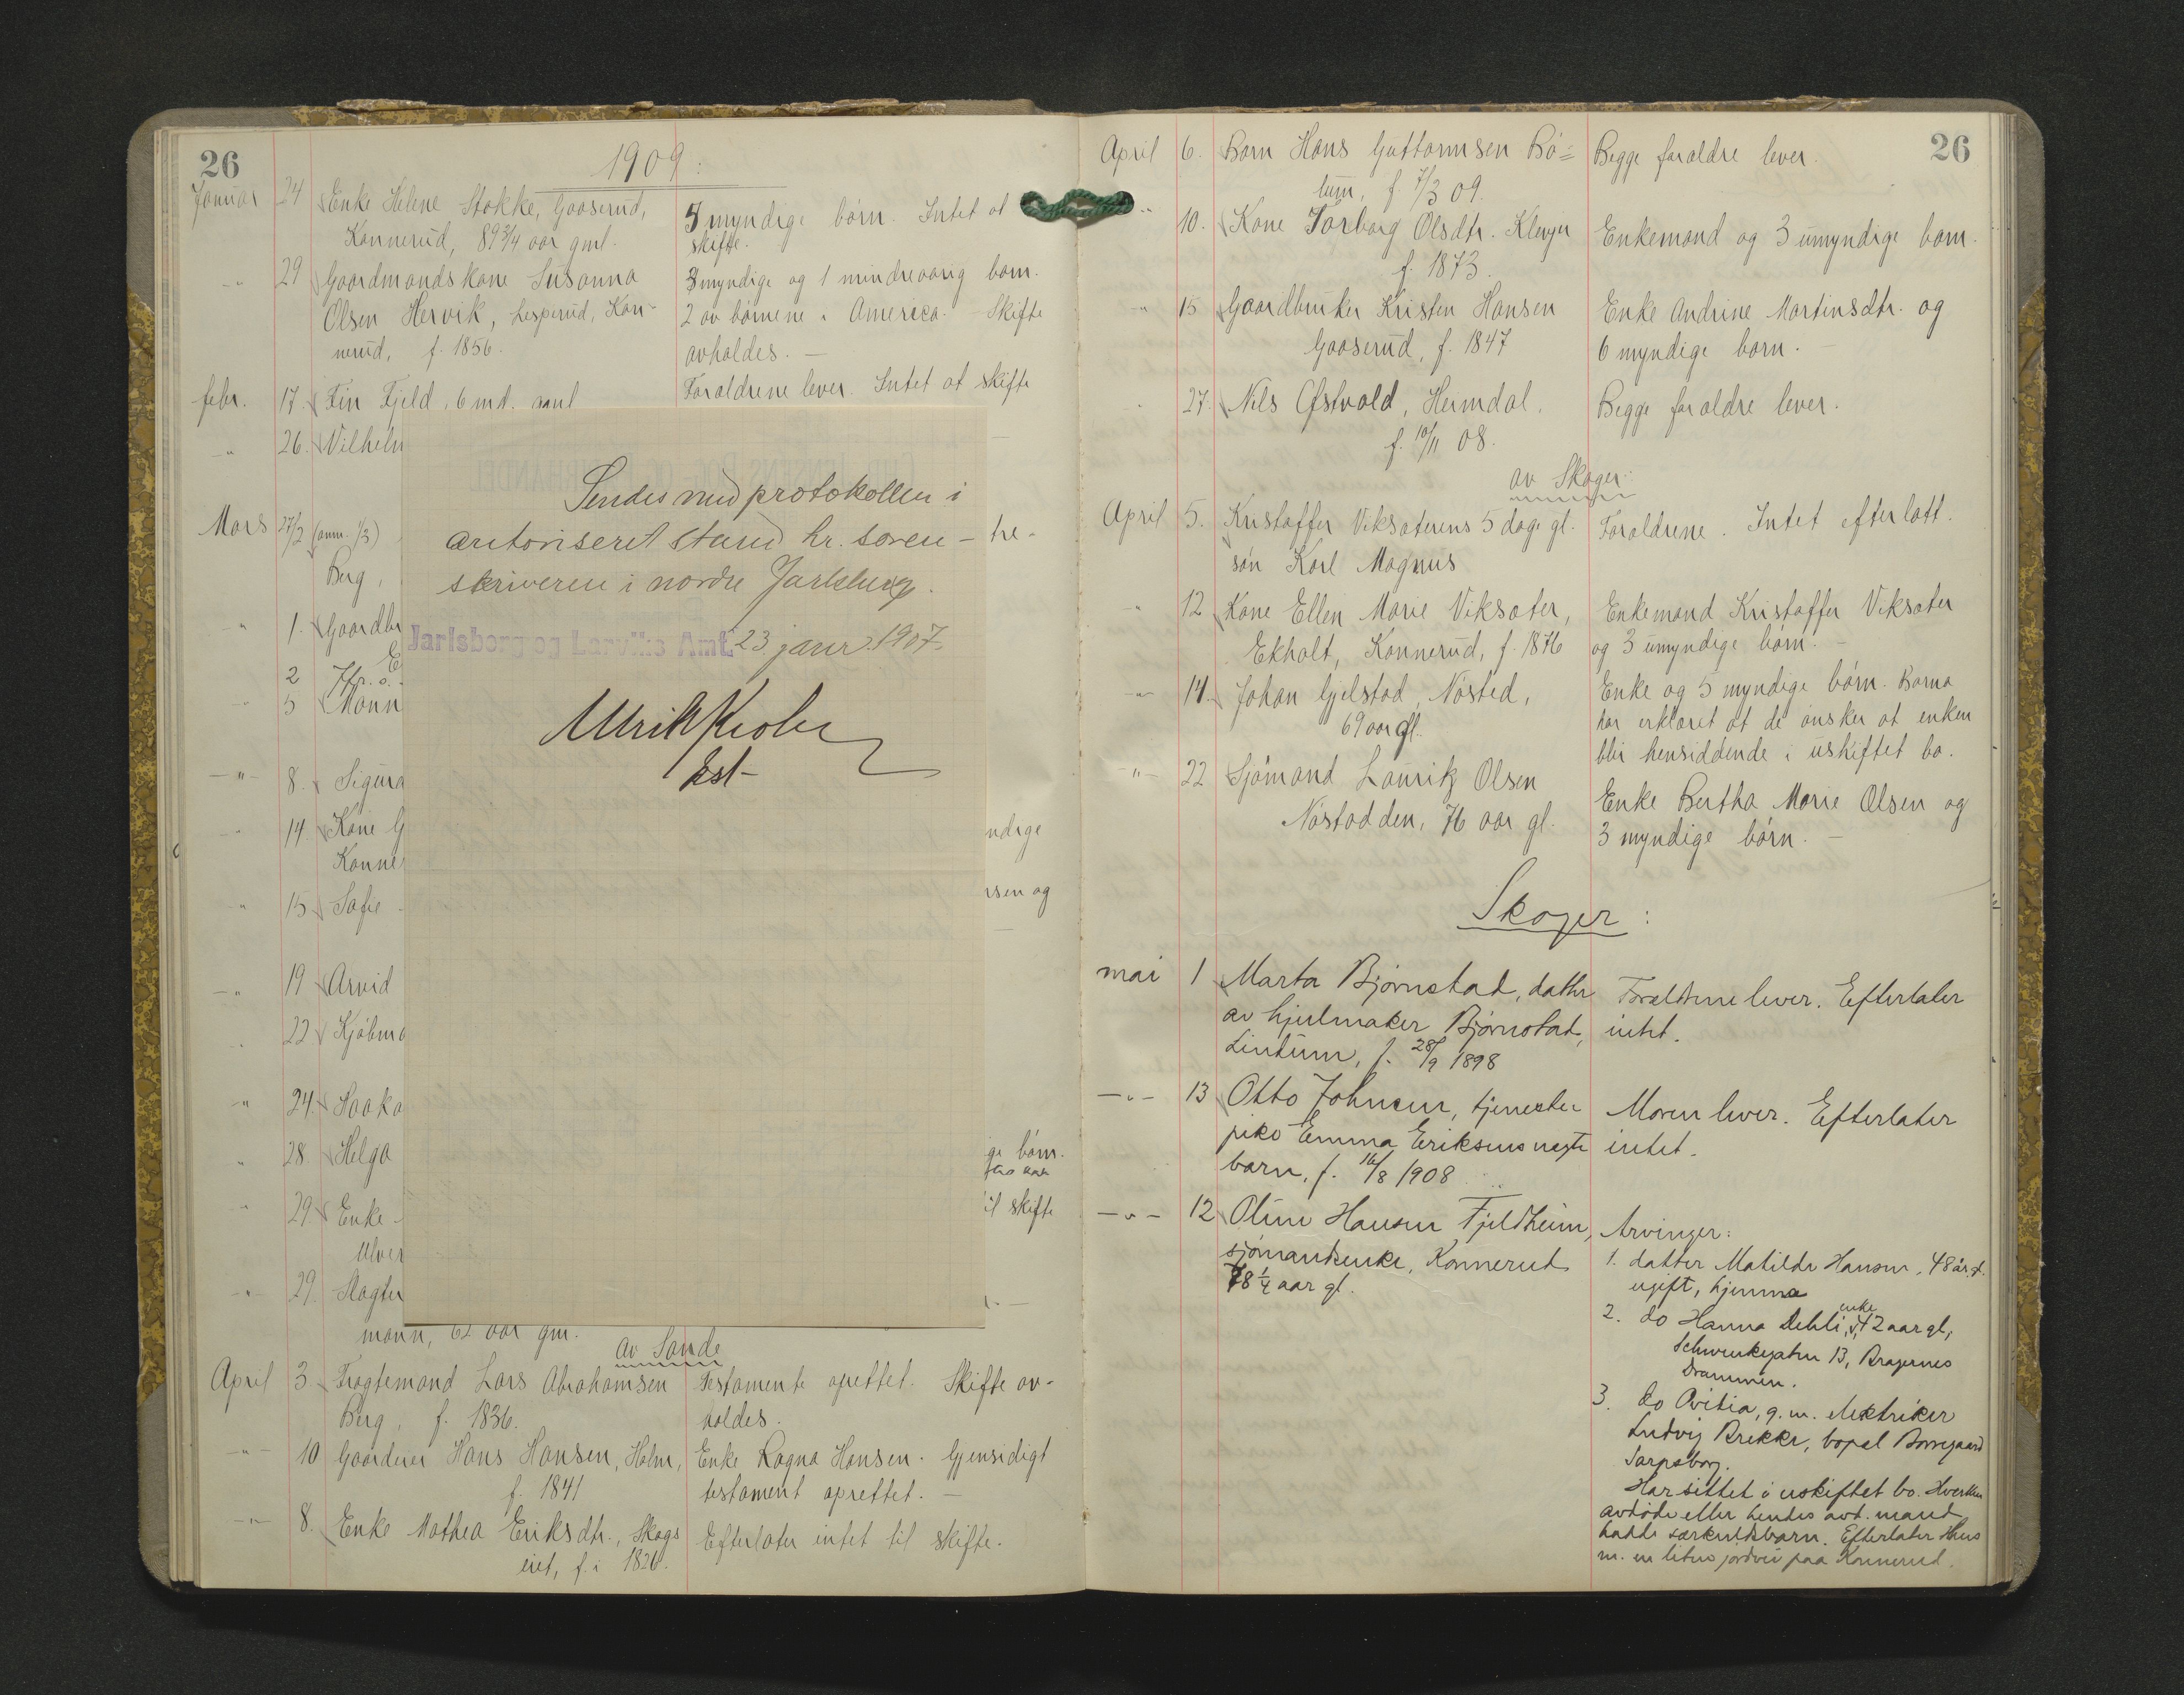 26
1909:
Januar 24 Enke Helene Stokke, Gaaserud, 5 myndige börn. Intet at
Konnerud, 89 3/4 aar gml. skifte.
-"- 29 Gaardmandskone Susanna 3 myndige og 1 mindreaarig barn.
Olsen Hervik, Lesperud, Kon- 2 av börnene i America. Skifte
nerud, f. 1856. avholdes. —
febr. 17. Fin Fjeld, 6 md. gaml Forældrene lever. Intet at skifte
-"- 26. Vilhelm
Mars 27/2 (anm. 1/3) tre-
Berg,
" 1. Gaardbr
E
2
" 5 Mann
-"- 8. Sigurd
" 14. Kone G ndige
Konne
" 15 Sofie rsen og
-"- 19 Arvid
" 22 Kjöbma
-"- 24. Haako
" 28. Helga ge börn.
" 29. Enke til skifte
Ulver
-"- 29. Slagter
mann, 62 aar gm.
av Sande
April 3. Fragtemand Lars Abrahamsen Testamente oprettet. Skifte av-
Berg, f. 1836. holdes.
-"- 10 Gaardeier Hans Hansen, Holm, Enke Ragna Hansen. Gjensidigt
f. 1841 testament oprettet. —
-"- 8. Enke Mathea Eriksdtr., Skogs Efterlater intet til skifte.
eiet, f. i 1826.
Sendes med protokollen i
autoriseret stand hr. soren-
skriveren i nordre Jarlsberg.
Jarlsberg og Larviks Amt, 23 janr. 1907.
Ulrik
kst-
26
April 6. Barn Hans Guttormsen Bö= Begge forældre lever.
tum, f. 7/3 09.
" 10. Kone Torborg Olsdtr. Klevjer Enkemand og 3 umyndige barn.
f. 1873.
-"- 15 Gaardbruker Kristen Hansen Enke Andrine Martinsdtr. og
Gaaserud, f. 1847 6 myndige barn. —
" 27. Nils Ofstvald, Heimdal, Begge forældre lever.
f. 10/11 08.
av Skoger:
April 5. Kristoffer Viksæterens 5 dage gl. Forældrene. Intet efterlatt.
sön Karl Magnus
" 12 Kone Ellen Marie Viksæter, Enkemand Kristoffer Viksæter
Ekholt, Konnerud, f. 1876 og 3 umyndige börn. —
-"- 14. Johan Gjelstad, Nøsted, Enke og 5 myndige börn. Barna
69 aar gl. har erklæret at de önsker at enken
blir hensiddende i uskiftet bo.
-"- 22 Sjömand Lauritz Olsen Enke Bertha Marie Olsen og
Nöstodden, 76 aar gl. 3 myndige börn. —
Skoger:
mai 1 Marta Bjørnstad, datter Forældrene lever. Efterlater
av hjulmaker Bjørnstad, intet.
Lintum, f. 28/9 1898
-"- 13 Otto Johnsen, tjeneste- Moren lever. Efterlater
pike Emma Eriksens uegte intet.
barn, f. 16/8 1908
-"- 12 Oline Hansen Fjeldheim, Arvinger:
sjømandsenke, Konnerud 1. datter Matilde Hansen, 48 år gl.
78 1/4 aar gl. ugift, hjemme
2. do Hanna Dehli, enke, 42 aar gl,
Schwenkegaten 13, Bragernes
Drammen.
3. do Ovitia, g. m. elektriker
Ludvig Brekke, bopæl Borregaard
Sarpsborg.
Har sittet i uskiftet bo. Hverken
avdøde eller hendes avd. mand
hadde særkuldsbarn. Efterlater Hus
m. en liten jordvei paa Konnerud.